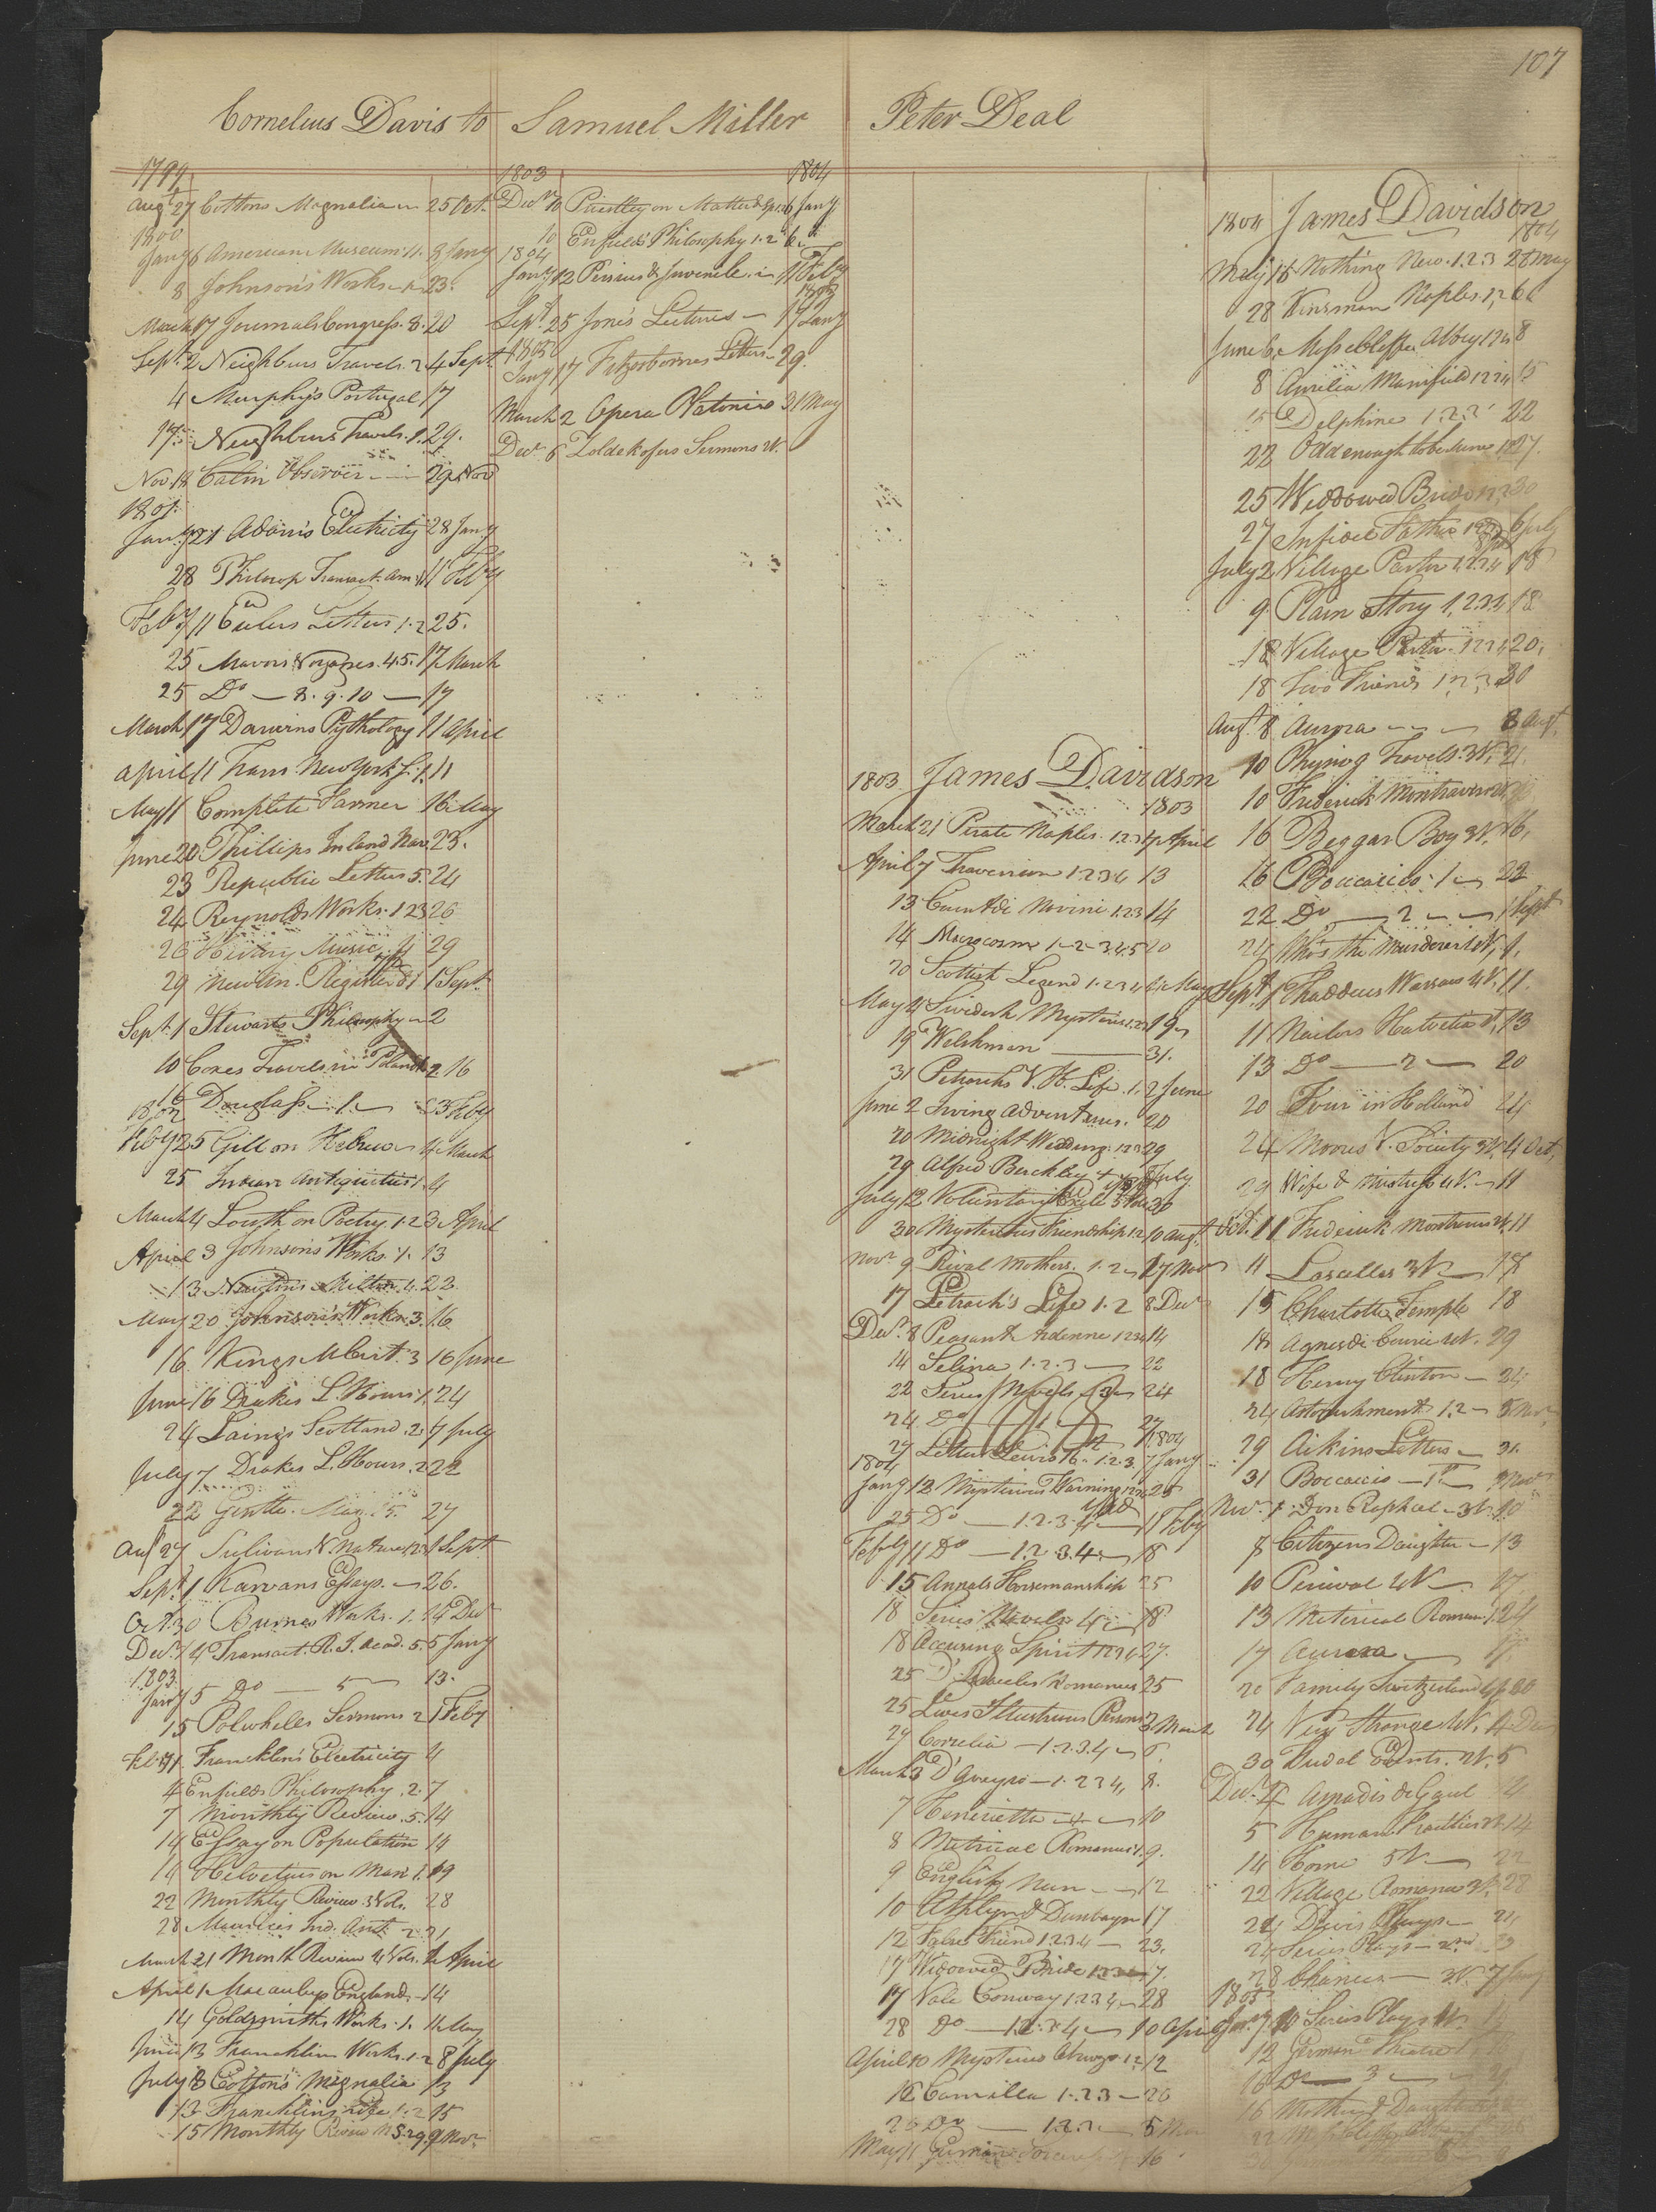 107
Cornelius Davis to Samuel Miller
Peter Deal
1799
Augt 27 Cottons Magnalia 25 Oct.
1800
Jany 6 American Museum 11. 8 Jany
8 Johnson's Works 23.
March 17 Journals Congress. 8. 20
Sept. 2 Neighburs Travels. 2 4 Sept
4 Murphy's Portugal 17
17 Neighburs Travels. 1. 29.
Nov 18 Observer 29 Nov
1801
Jany 21 Adams Electricity 28 Jany
28 Philosop Transact. Am. 11 Feby
Feby 11 Eulers Letters 1.2 25.
25 Mavors Voyages. 4.5. 17 March
25 Do — 8. 9. 10 — 17
March 17 Darwins Pythology 11 April
April 11 Trans. New York S. 1. 11
May 11 Complete Farmer 16 May
June 20 Phillips Inland Nav. 23.
23 Republic Letters 5. 24
24 Reynolds Works. 1 2 3 26
26 Music 29
29 New An. Register 1 Sept.
Sept. 1 Stewarts Philosophy 2
10 Coxes Travels in Poland 2. 16
16 Douglass 1. 23 Feby
1802
Feby 25 Gill on Hebrew 4 March
25 Indian Antiquities 1. 4
March 4 Louth on Poetry. 1.2 3 April
April 3 Johnson's Works. 1. 13
13 Newtons Milton. 22.
May 20 Johnson's Works. 3. 16
16 Kings M Crit. 3 16 June
June 16 Drakes L. Hours 1. 24
24 Laing's Scotland. 2. 7 July
July 7 Drakes L. Hours. 2 22
22 Gentle. Mag. 5. 27
Aug 27 Sulivans V. Nature 1.2. 1 Sept
Sept. 1 Karvans Essays. — 26.
Oct. 30 Burns Works. 1. 14 Decr
Decr. 14 Transact. R. I. Acad. 5. 5 Jany
1803
Jany 5 Do — 5 — 13.
15 Polwheles Sermons 2 1 Feby
Feby 1 Francklin's Electricity 4
4 Enfields Philosophy. 2. 7
7 Monthly Review. 5. 14
14 Essay on Population 14
14 Helvetius on Man 1. 19
22 Monthly Review 3 Vols. 28
28 Maurices Ind. Ant. 2. 21
March 21 Month Review 4 Vols. 1 April
April 1 Macaulays England — 14
14 Goldsmiths Works. 1. 11 May
June 13 Francklin Works. 1.2 8 July
July 8 Cotton's Magnalia 13
13 Francklins Life 1.2 15
15 Monthly Review 9 Novr.
1803 1804
Decr 10 Priestley on Matter & Spi. Jany
10 Enfields Philosophy 1.2
1804
Jany 12 Persius & Juvenile 11 Feby
1805
Sept. 25 Jones Lectures — 17 Jany
1805
Jany 17 Fitzosbornes Letters 29.
March 2 Opera Platonis 31 May
Decr 6 Zoldekofers Sermons
1803 James Davidson
1803
March 21 Pirate Naples. 1.2.3 7 April
April 7 Traversion 1 2 3 4 13
13 Count di Novini 1.2.3 14
14 Microcosm 1-2-3.4.5 20
20 Scottish Legend 1.2.3 4 4 May
May 4 Swedish Mysteries 1.2.3 19
19 Welshman — 31.
31 Petrarchs V. H. Life. 1. 2 June
June 2 Irving Adventures. 20
20 Midnight Wedding. 1 2 3 29
29 Alfred Berckley July
July 12 Voluntary Exile 30
30 Mysterious Friendship 1.2 10 Augt
Novr. 9 Rival Mothers. 1.2 17 Novr
17 Petrach's Life 1.2 8 Decr
Decr. 8 Peasant Ardenne 1 2 3 14
14 Selina 1.2.3 — 22
22 Series Novels 3 24
24 Do 27
1804
27 Letters Lewis 16. 1.2.3 7 Jany
1804
Jany 12 Mysterious Warning 1 2 3 4 25
25 Do — 1.2.3.4 — 11 Feby
Feby 11 Do — 1.2.3.4 — 18
15 Annals Horsemanship 25
18 Series Novels 4 18
18 Accusing Spirit 1 2 3 4 27.
25 D'Israelis Romances 25
25 Lives Illustrious Persons 3 March
27 Correlia — 1.2.3.4 — 8.
March 3 D'Gueyro — 1. 2 3 4, 8.
7 Henrietta 10
8 Metrical Romances 1. 9.
9 English Nun — 12
10 Athlyn & Dunbayn 17
12 False Friend 1 2 3 4 — 23.
17 Widowed Bride 1 2 3 — 7.
17 Vale Conway 1 2 3 4 28
28 Do — 1.2.3 4 — 10 April
April 10 Mysterious 1.2 12
12 Camilla 1.2.3 — 26
26 Do — 1.2.3 — 5 May
May 11 16
1804 James Davidson
1804
May 18 Nothing New. 1.2.3 28 May
28 Kinsman Naples. 1,2 6
June 6 Miss Abbey 1 2 3 8
8 Amelia Mansfield 1 2 3 4 15
15 Delphine 1.2.3 22
22 Odd enough to be sure 1 2 27.
25 Widdowed Bride 1 2 3 30
27 Infidel Father 1 2 3 6 July
July 2 Village Pastor 1.2.3 4 18
9 Plain Story 1. 2 3 4 18
18 Village Pastor. 1 2 3 4 20.
18 Two Friends 1.2.3 30
Augt. 8 Aurora — 8 Augt.
10 Phisiog Travels. 3 V. 21.
10 Frederick Montraverse
16 Beggar Boy 3 V. 16.
16 Boccaccio. 1 22
22 Do — 2 — 1 Sept
24 Who's the Murderer 4 V. 1.
Sept. 1 Thaddeus Warsaw 4 V. 11.
11 Nailors Helvetia 1. 13
13 Do — 2 — 20
20 Tour in Holland 24
24 Moores V. Society 3 V. 4 Oct.
29 Wife & Mistress 4 V. 11
Oct. 11 Frederick Montraverse 2 V. 11
11 Lascelles 3 V. 18
15 Charlotte Temple 18
18 Agnes di Courci 4 V. 29
18 Henry Clinton — 24
24 Astonishment 1.2 5 Novr
29 Aikins Letters — 31.
31 Boccaccio — 1st — 9 Novr
Nov. 1 Don Raphael — 3 V. 10
8 Citizens Daughter — 13
10 Percival 4 V. 17
13 Meterical Roman. 1. 24
17 Aurora — 17.
20 Family Switzerland 30
24 Very Strange 4 V. 4 Dec
30 Rival Aunts. 2 V. 5
Decr. 4 Amadis de Gaul 4
5 Human Frailties 3 V. 14
14 Home 5 V. — 22
22 Village Romance 3 V. 28
24 Davis Plays — 24
24 Series Plays — 2nd 29
28 Chances — 3 V. 7 Jany
1805
Jany 10 Series Plays
12 German Theatre
16 Do — 3 —
16 Mother & Daughter